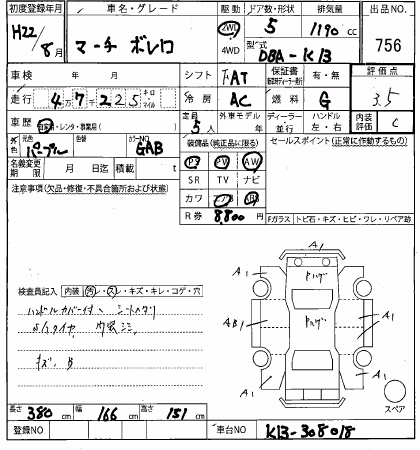 初度登録年月 車名・グレード 駆動 ドア数・形状 排気量 出品NO.
H22/8月 マーチ ボレロ 2WD 4WD 5 1190 cc 756
型式 DBA-K13
車検 年 月 シフト FAT 保証書 有・無 評価点
走行 47225 キロ マイル 冷房 AC 燃料 G 3.5
車歴 自家用・レンタ・事業用( ) 定員 5人 外車モデル 年 ディーラー・並行 ハンドル 左・右 内装評価 C
外色 元色 パープル 色替 カラーNO GAB 装備品(純正品に限る) セールスポイント(正常に作動するもの)
名義変更期限 月 日迄 積載 t PS PW AW
注意事項(欠品・修復・不具合箇所および状態) SR TV ナビ
カワ エアB ABS
R券 8,800円 Fガラス トビ石・キズ・ヒビ・ワレ・リペア跡
A1
A1 A1
検査員記入 内装 汚レ・スレ・キズ・キレ・コゲ・穴
ハンドルカバー付、シートヘタリ
AB1 A1
内装シミ
キズ、B
A1 A1
A1
スペア
長さ 380 cm 幅 166 cm 高さ 151 cm
登録NO 車台NO K13-308018